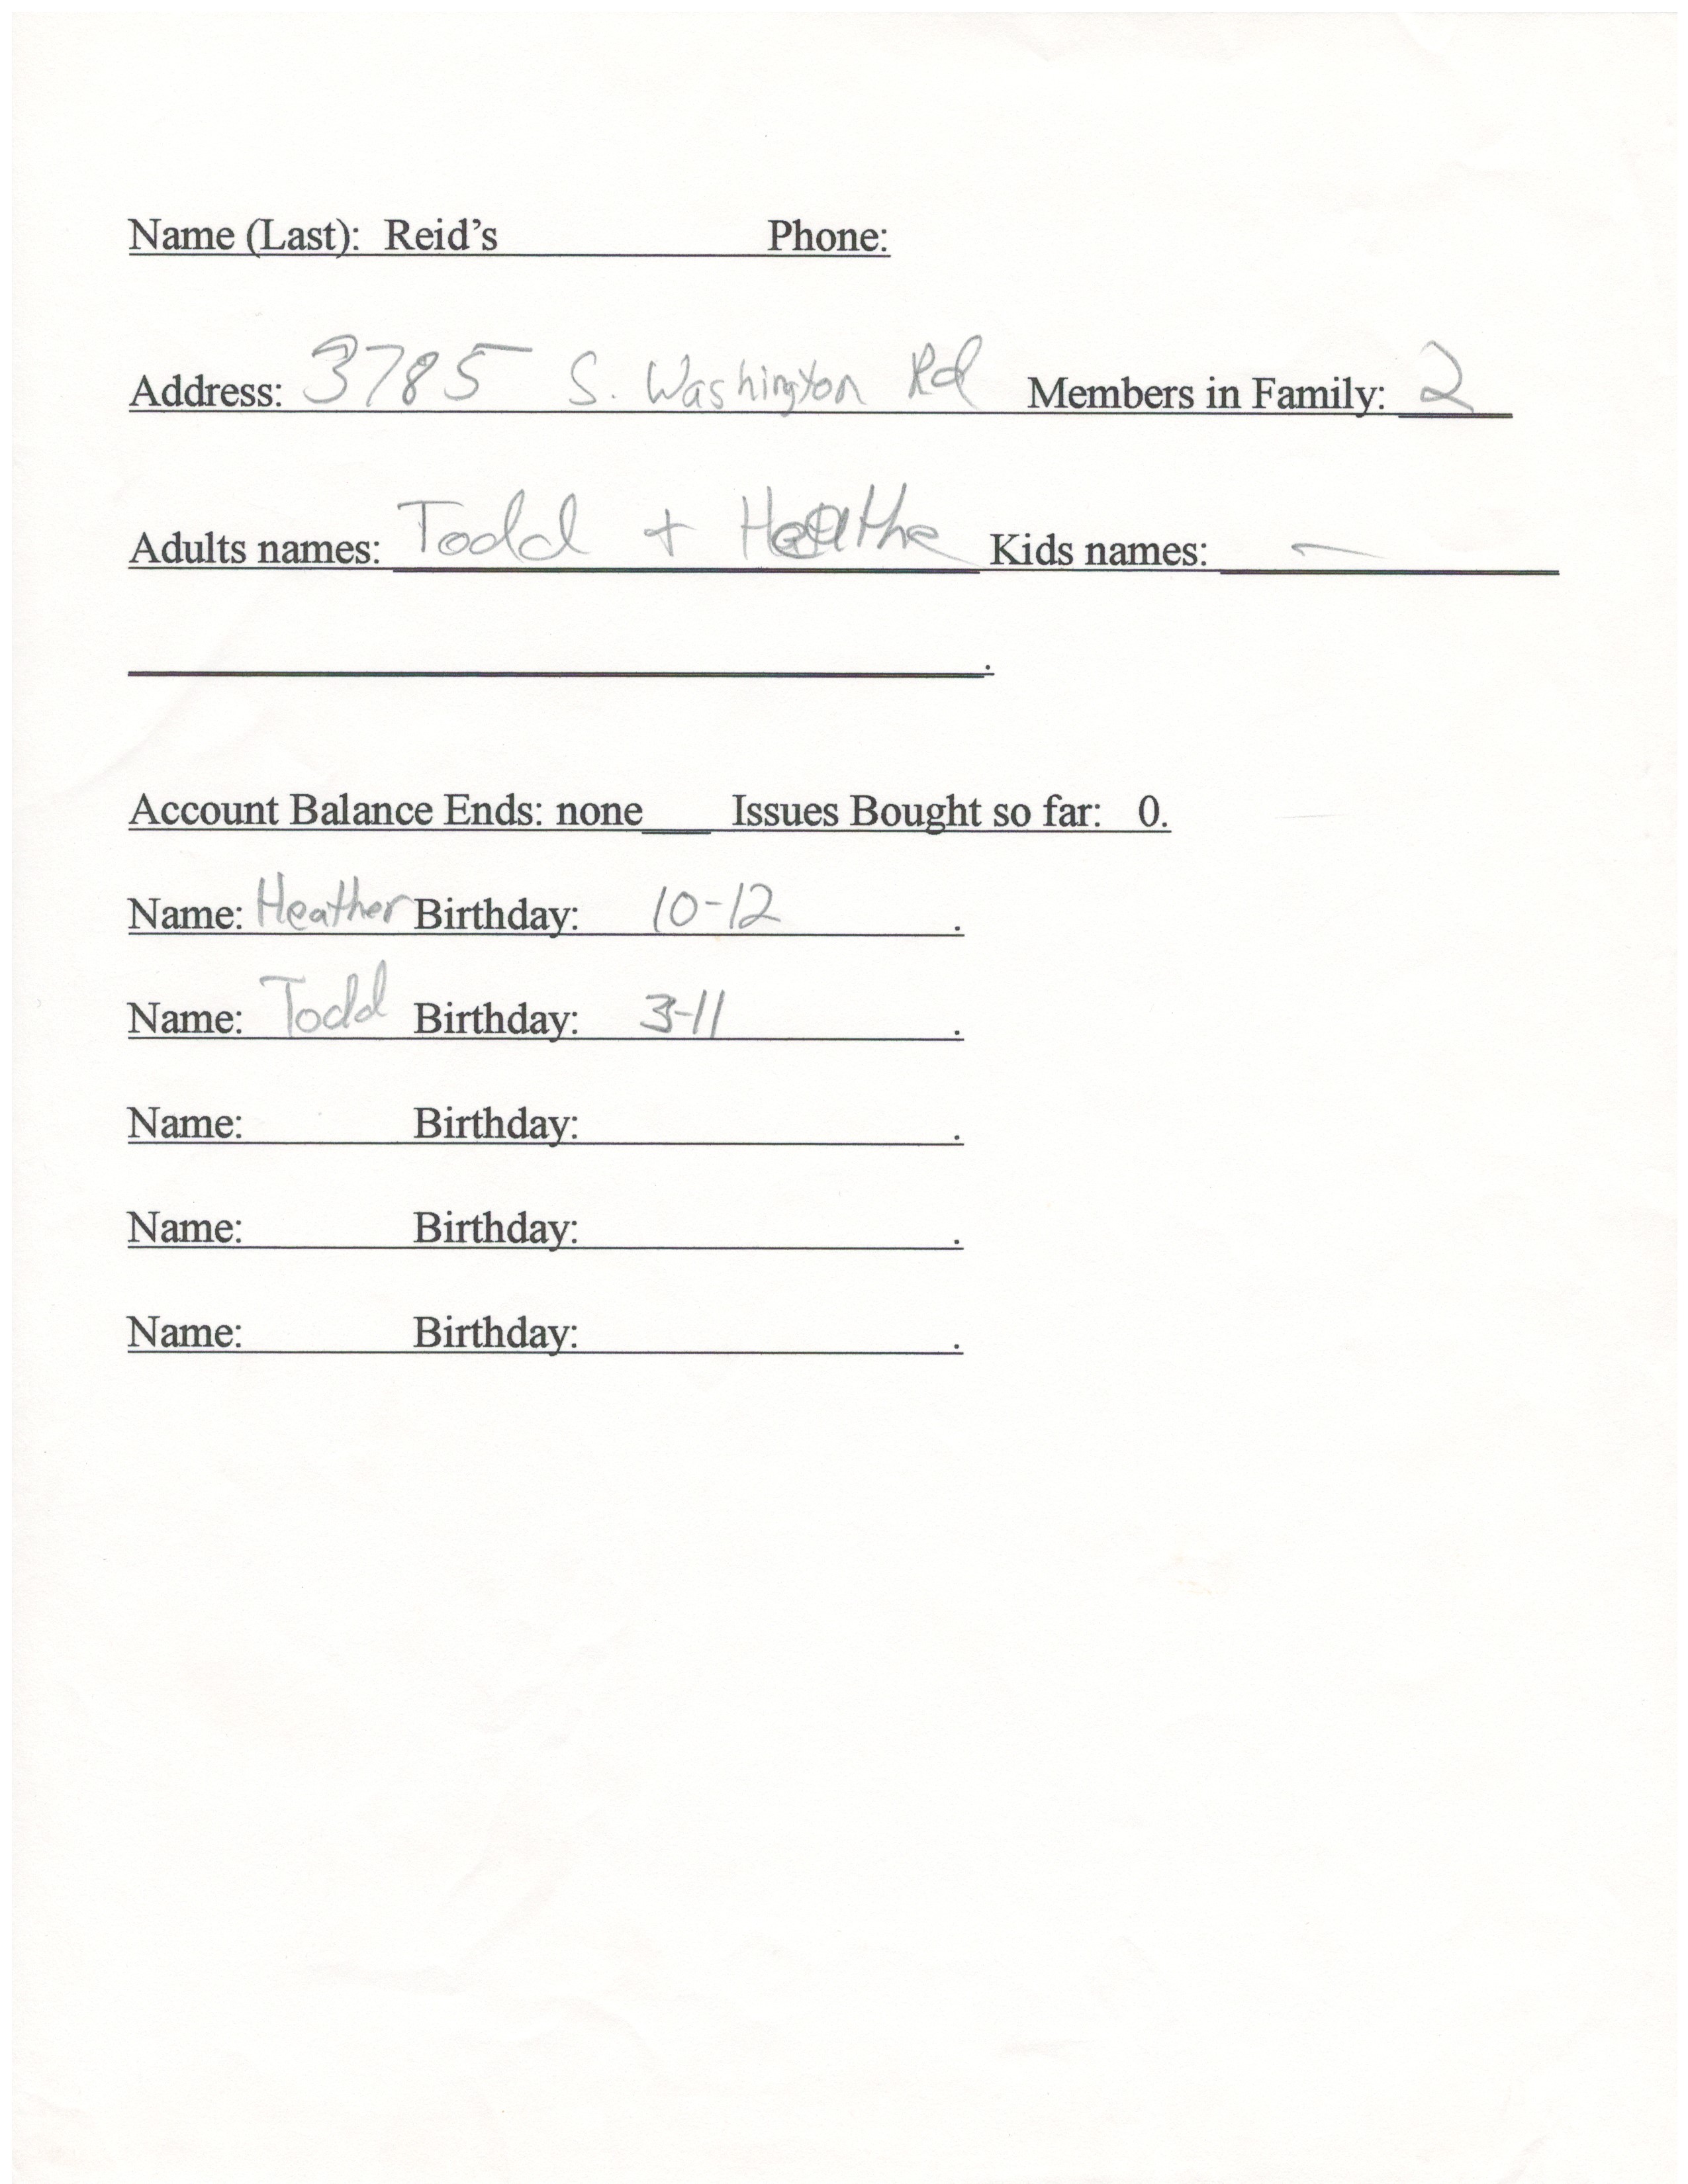 Name (Last): Reid's Phone:
Address: 3785 S. Washington Rd Members in Family: 2
Adults names: Todd + Heathe Kids names: –
.
Account Balance Ends: none Issues Bought so far: 0.
Name: Heather Birthday: 10-12 .
Name: Todd Birthday: 3-11 .
Name: Birthday: .
Name: Birthday: .
Name: Birthday: .